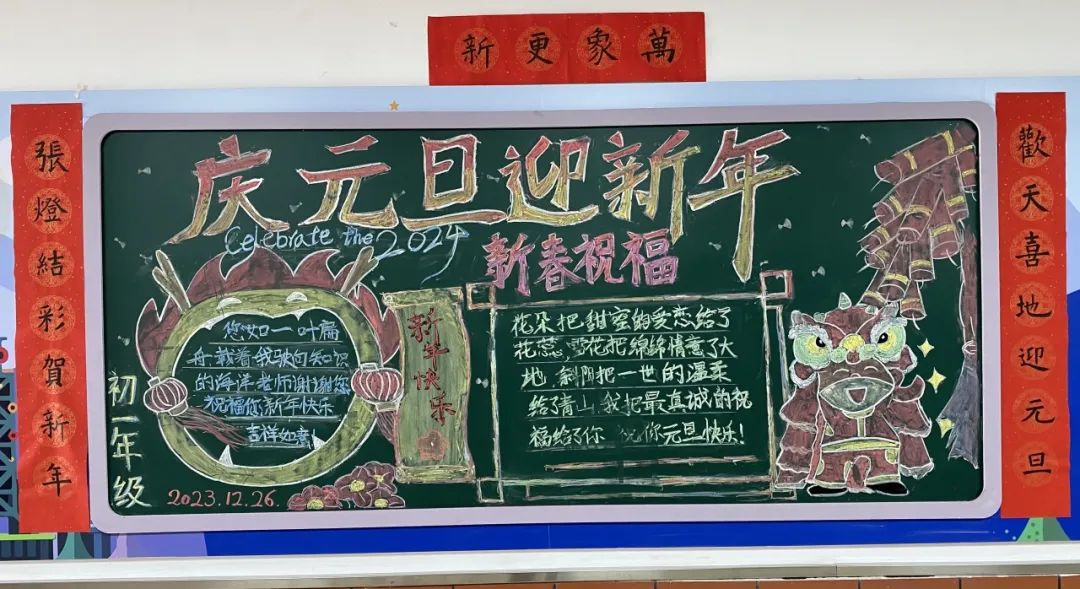 新更象萬
歡天喜地迎元旦
張燈結彩賀新年
庆元旦迎新年
Celebrate the 2024
新春祝福
您如一叶扁
舟载着我驶向知识
的海洋老师谢谢您
祝福您新年快乐
吉祥如意!
新年快乐
花朵把甜蜜的爱恋给了
花蕊,雪花把绵绵情意了大
地,斜阳把一世的温柔
给了青山,我把最真诚的祝
福给了你 祝你元旦快乐!
初一年级
2023.12.26.